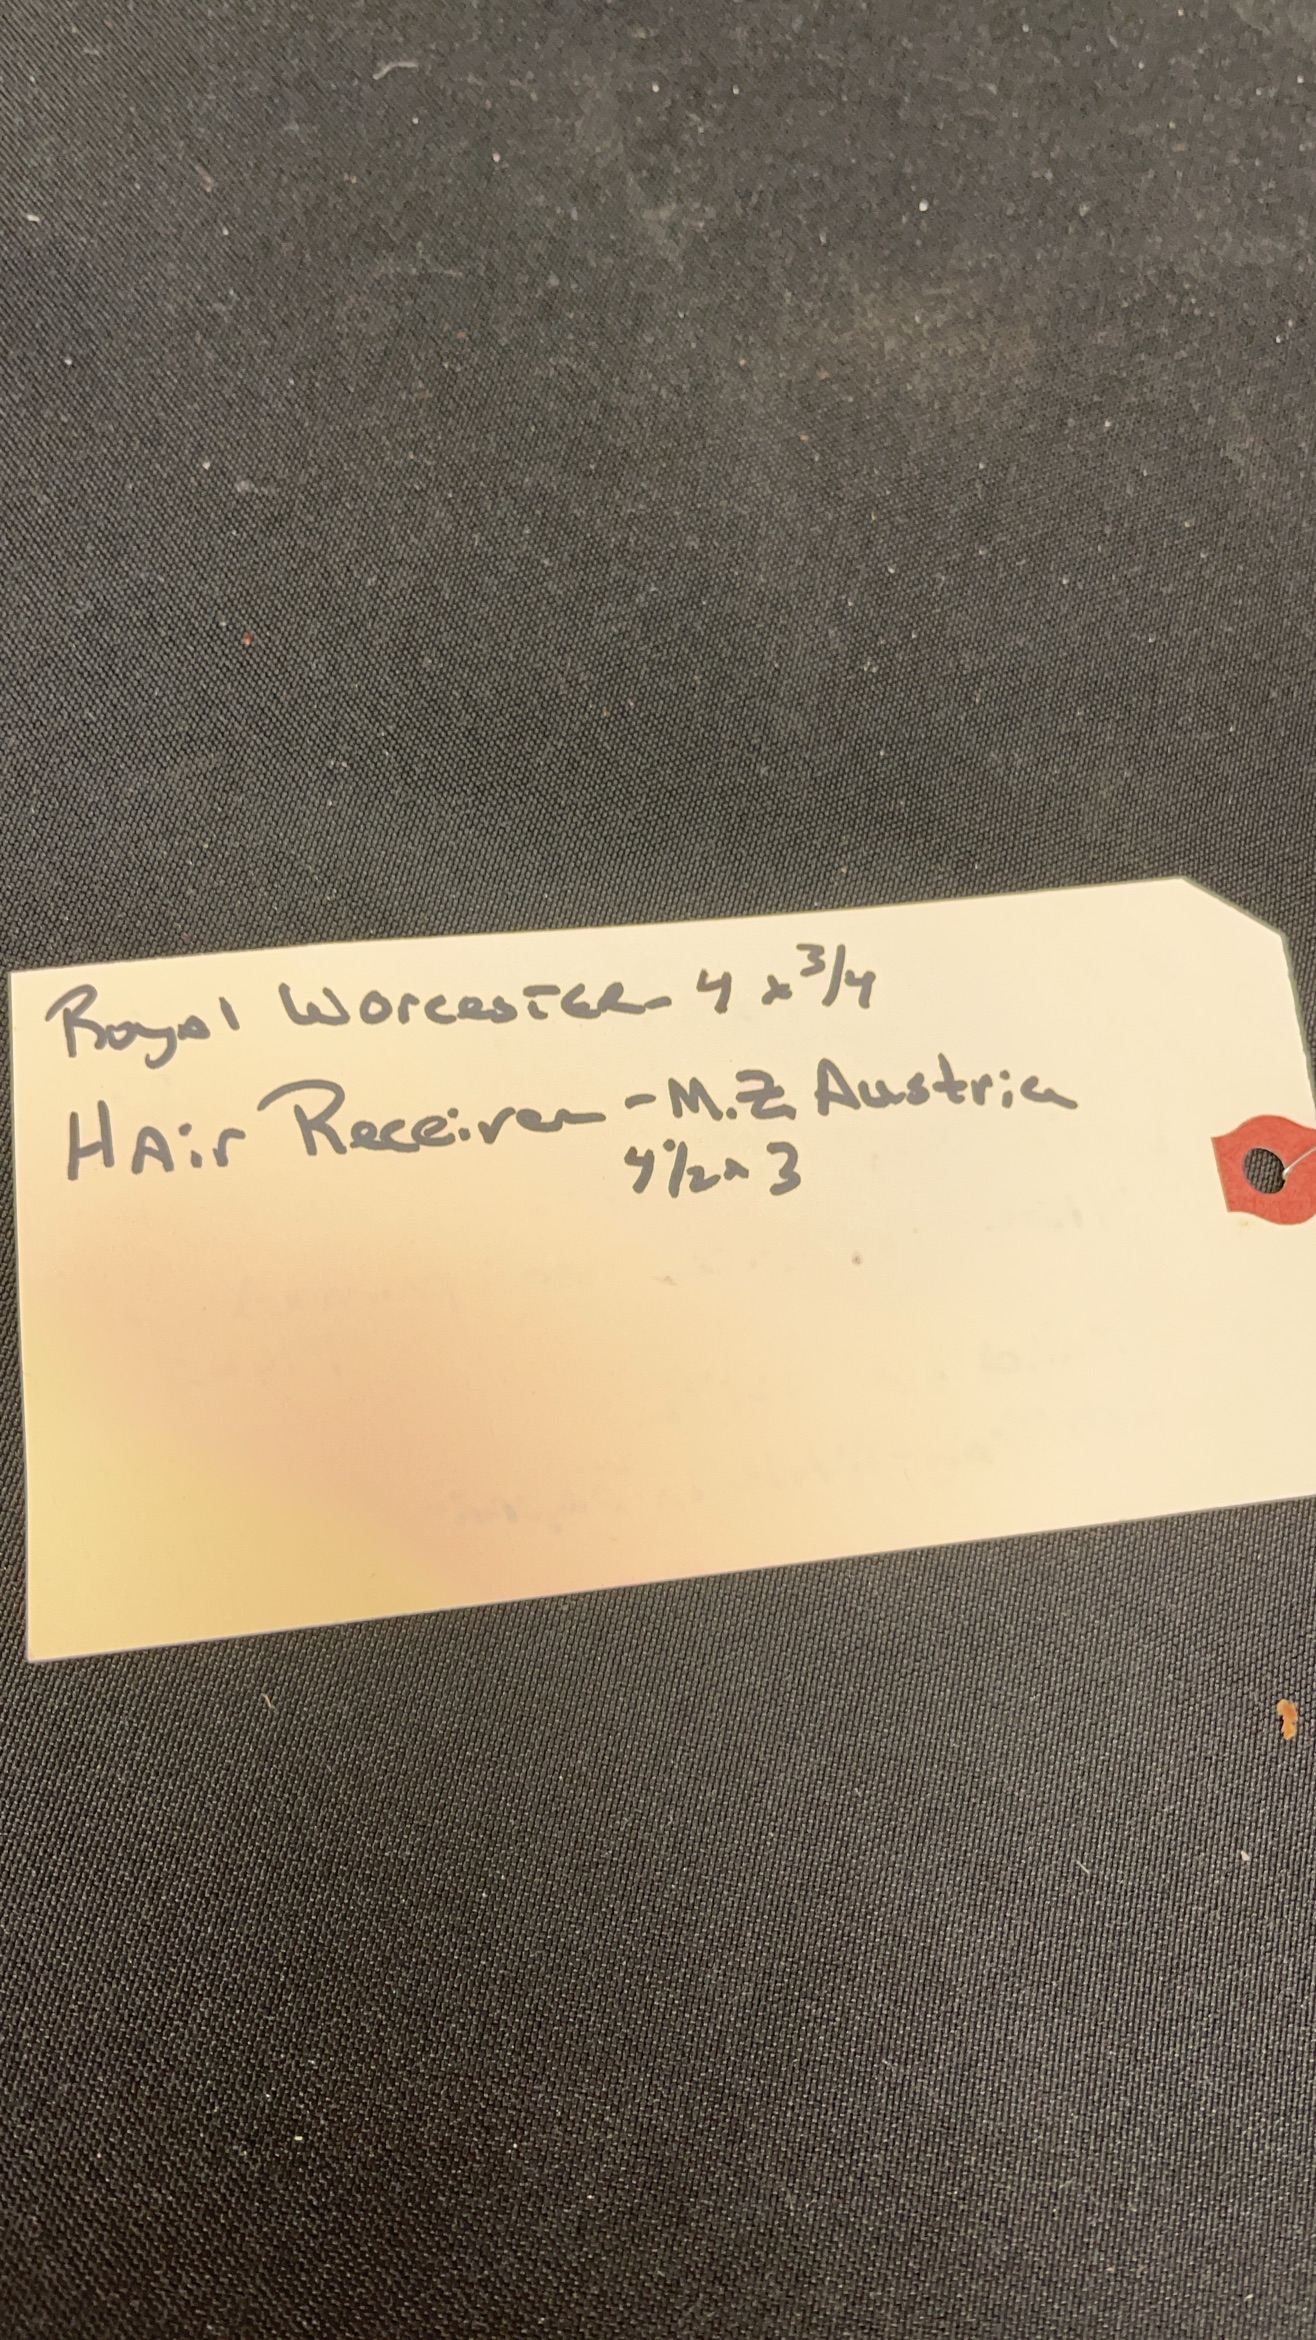 Royal Worcester - 4 x 3/4
HAir Receiver - M.Z. Austria
4 1/2 x 3